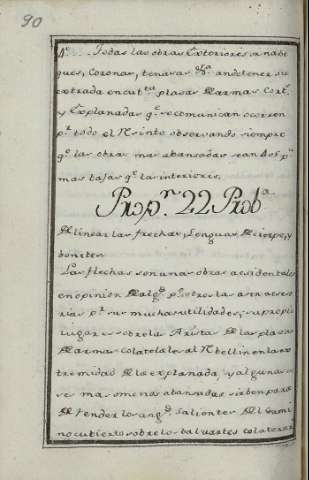 90
4º.. Todas las obras Exteriores ornabe
ques, Coronas, tenasas &ª. an de tener su
extrada en cubtª. plasas de armas Cortˢ.
y Explanadas qᵉ. se comunican o corren
pʳ. todo el Resinto observando siempre
qᵉ. las obras mas abansadas sean
mas bajas qᵉ. las interiores.
Propⁿ. 22 Probª
Delinear las flechas, Lenguas de cierpe, y
bonetes
Las flechas son unas obras acsidentales
en opinion de algˢ. pº otros las asen aceso
rias pʳ. sus muchas utilidades; su propio
lugar es sobre la Arista de las plasas
de armas colaterales al Rebellin en la ex
tremidad de la explanada, y algunas ve
ses mas o menos abansadas sirben para
defender los angˢ. salientes del Cami
no cubierto sobre los baluartes colatera